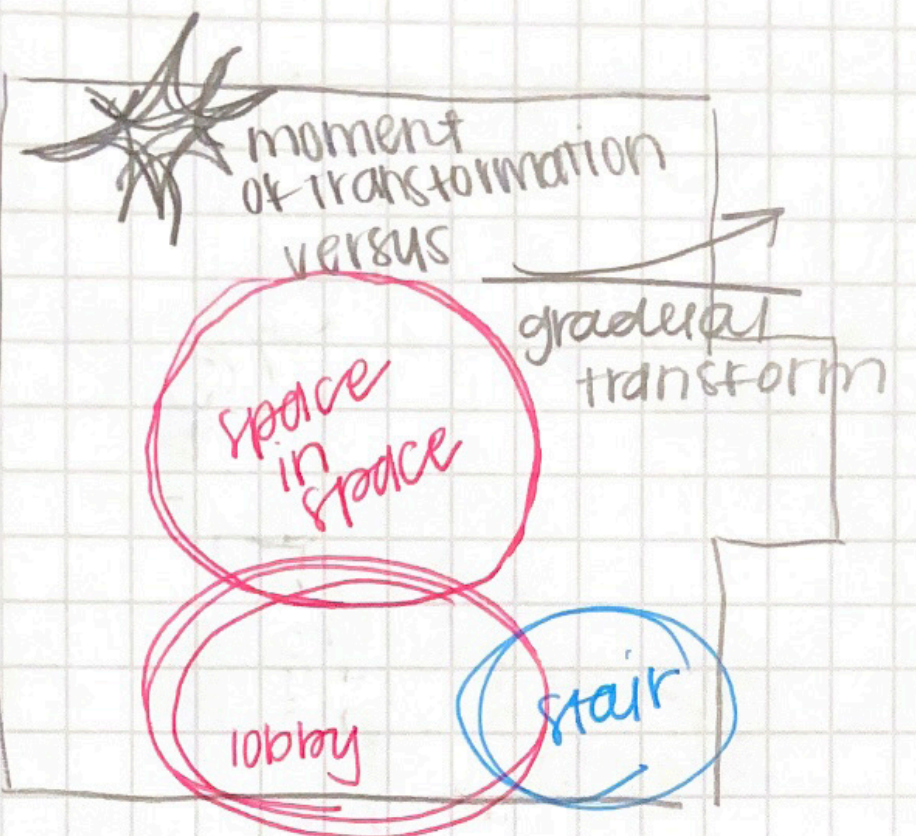 moment
of transformation
versus
gradual
transform
space
in
space
lobby
stair